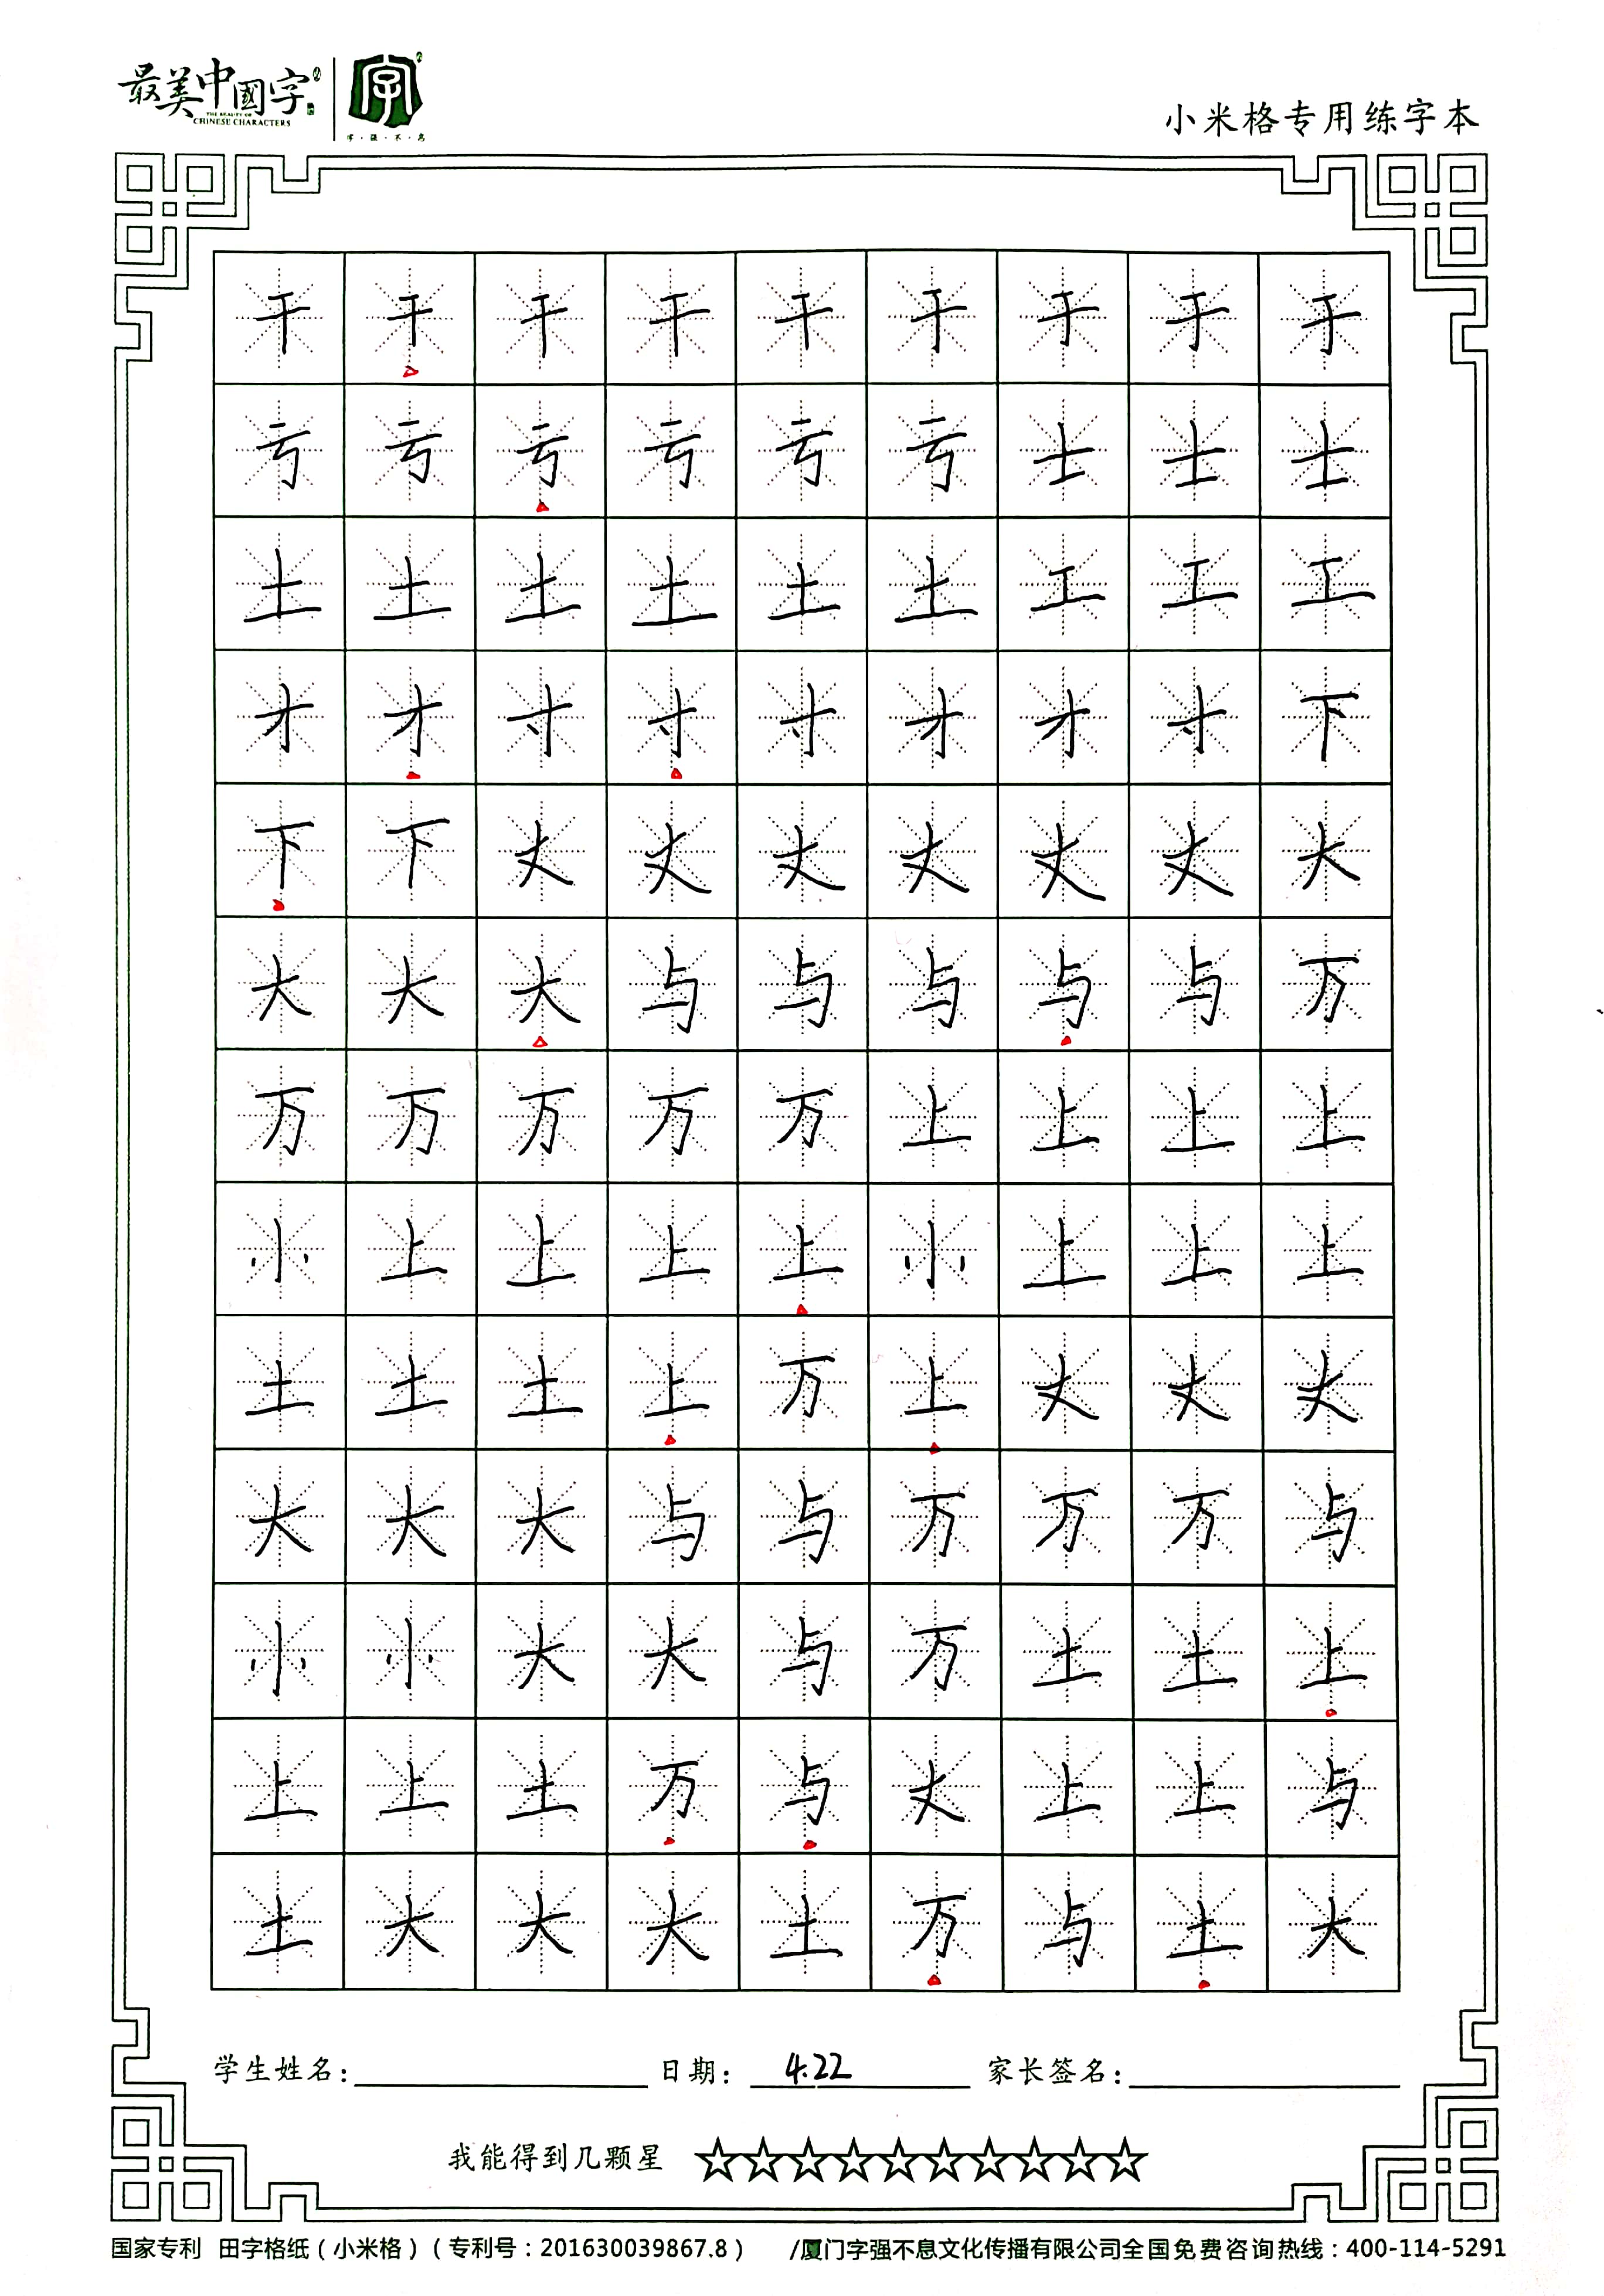 最美中國字
THE BEAUTY OF
CHINESE CHARACTERS
字
字·强·不·息
小米格专用练字本
干 干 干 干 干 于 于 于 于
亏 亏 亏 亏 亏 亏 士 士 士
土 土 土 土 土 土 工 工 工
才 才 寸 寸 寸 才 才 寸 下
下 下 丈 丈 丈 丈 丈 丈 大
大 大 大 与 与 与 与 与 万
万 万 万 万 万 上 上 上 上
小 上 上 上 上 小 上 上 上
土 土 土 上 万 上 丈 丈 丈
大 大 大 与 与 万 万 万 与
小 小 大 大 与 万 土 土 上
上 上 土 万 与 丈 上 上 与
土 大 大 大 土 万 与 土 大
学生姓名: 日期: 4.22 家长签名:
我能得到几颗星 ☆☆☆☆☆☆☆☆☆☆
国家专利 田字格纸(小米格)(专利号:201630039867.8) /厦门字强不息文化传播有限公司全国免费咨询热线:400-114-5291